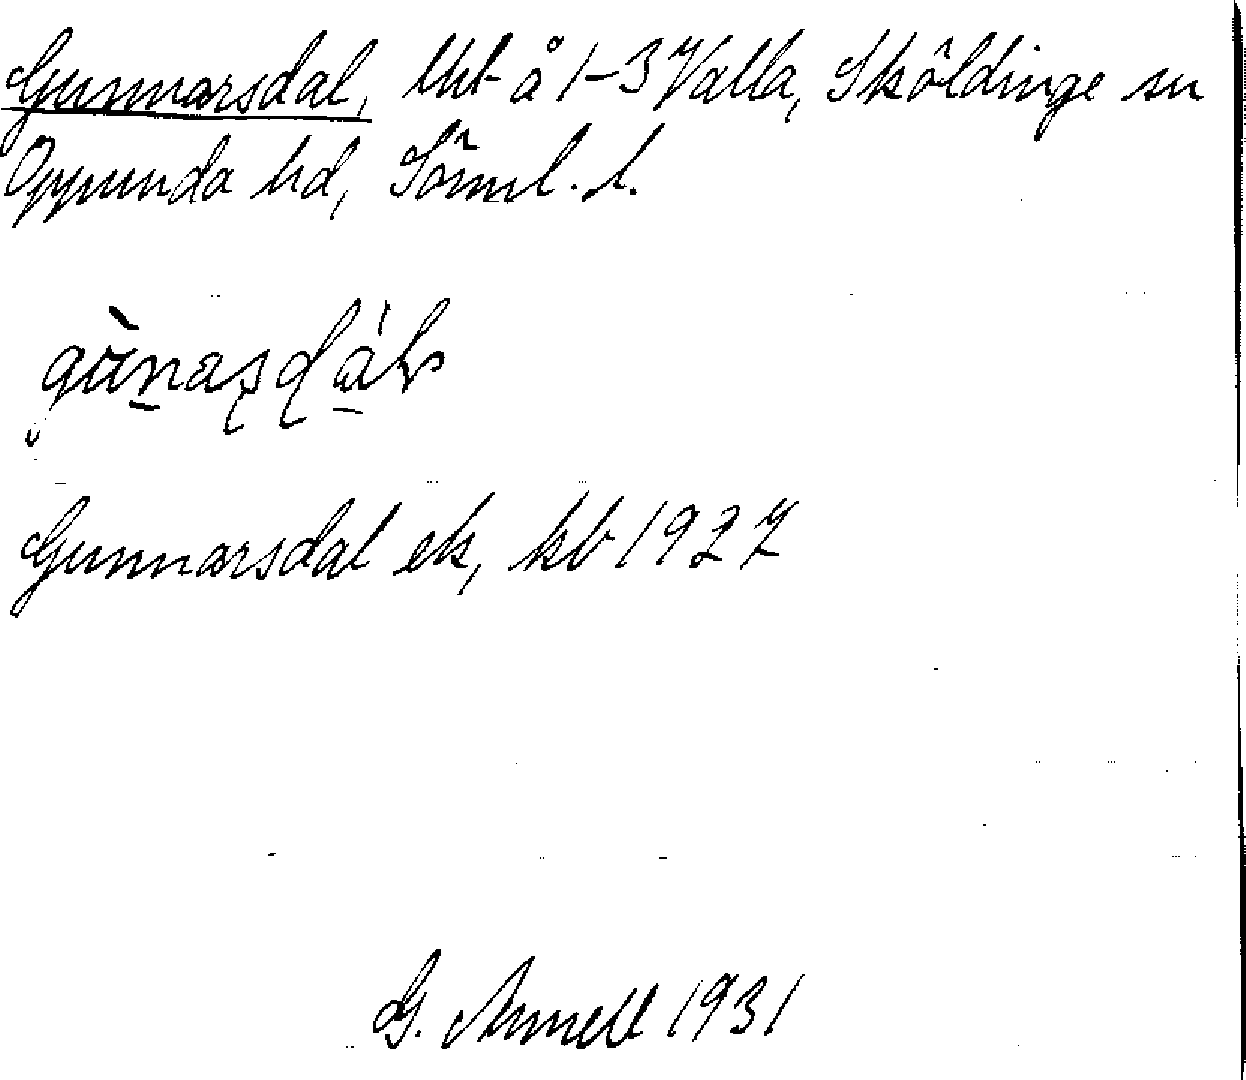 Gunnarsdal, lht å 1-3 Valla, Sköldinge sn
Oppunda hd, Söml. l.
Gunnarsdal ek, kb 1927
G. Arnell 1931